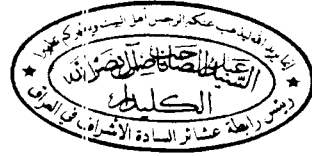 إنما يريد الله ليذهب عنكم الرجس أهل البيت ويطهركم تطهيرا
السيد عبد الصاحب آل نصر الله
الكليدار
رئيس رابطة عشائر السادة الأشراف في العراق